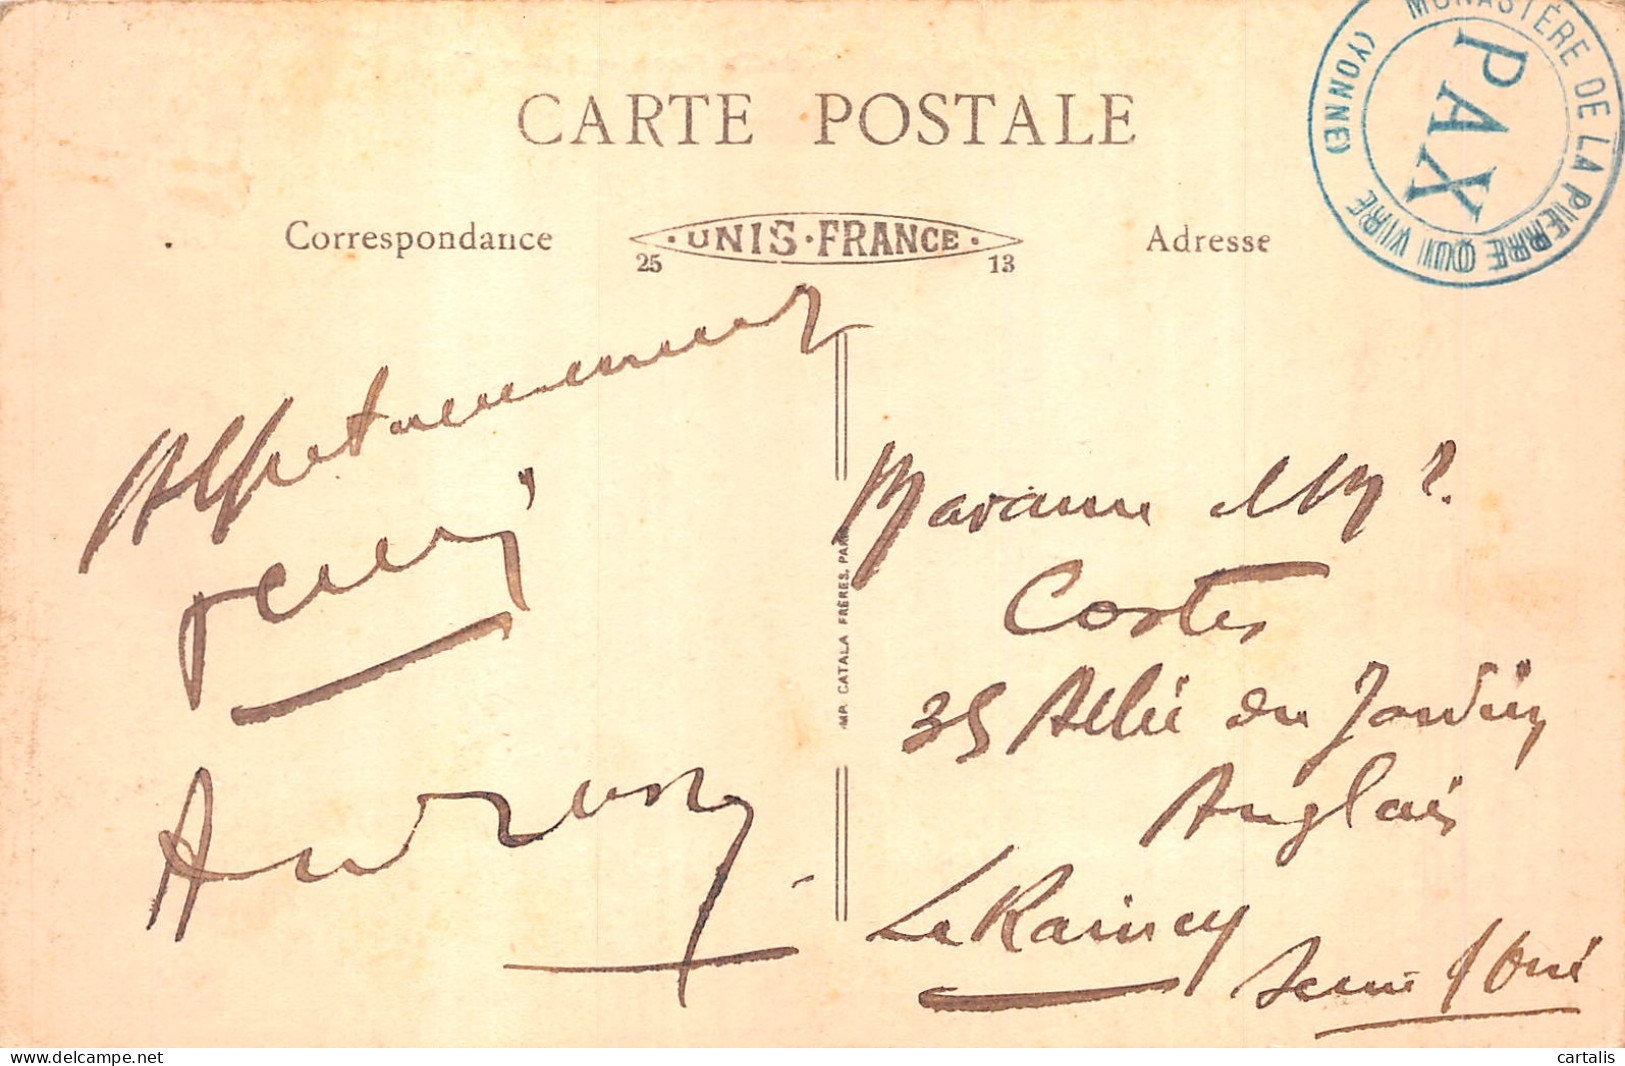 MONASTÈRE DE LA PIERRE QUI VIRE
(YONNE)
PAX
CARTE POSTALE
Correspondance
· UNIS · FRANCE ·
25 13
Adresse
IMP. CATALA FRÈRES, PARIS
Madame et Mr
Costes
35 Allée du Jardin
Anglais
Le Raincy
Seine & Oise
cartalis